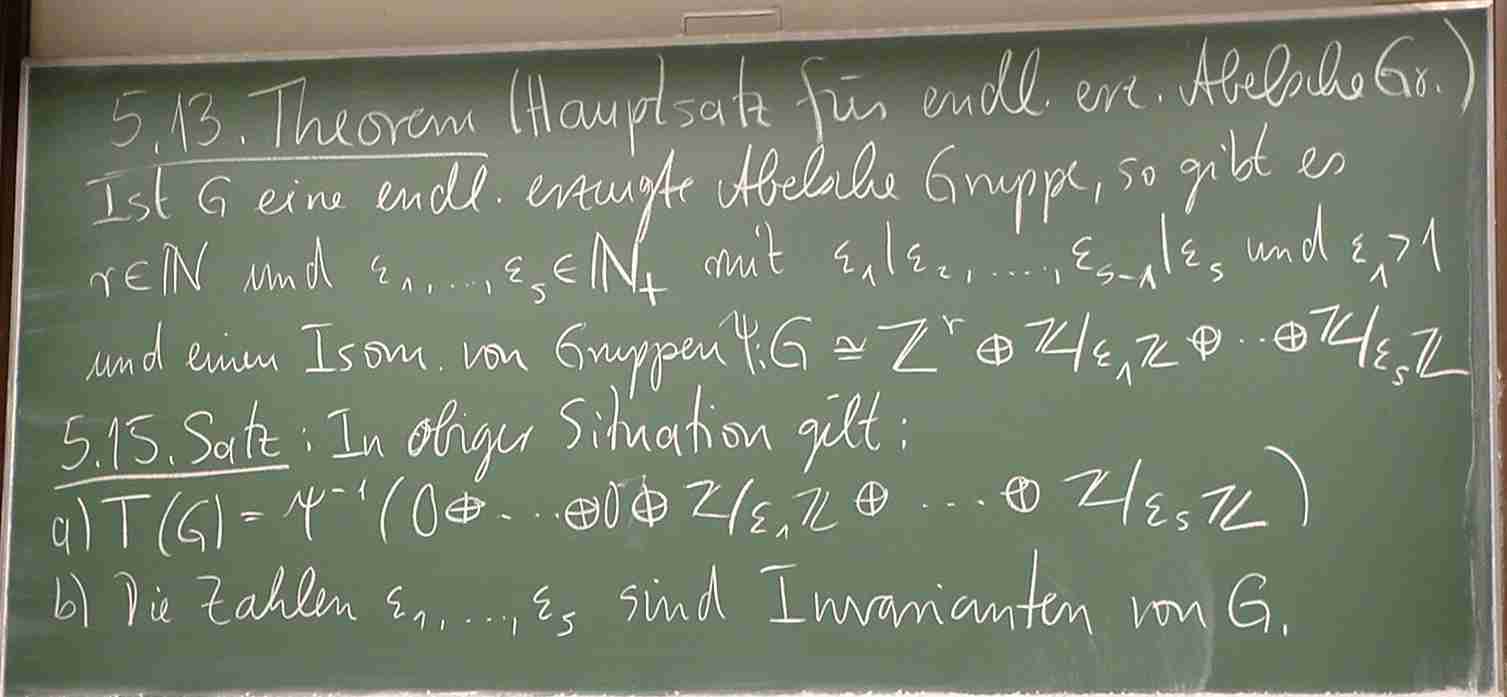 5.13. Theorem (Hauptsatz für endl. erz. Abelsche Gr.)
Ist G eine endl. erzeugte Abelsche Gruppe, so gibt es
r∈ℕ und ε₁,...,εₛ∈ℕ₊ mit ε₁|ε₂,.....,εₛ₋₁|εₛ und ε₁>1
und einen Isom. von Gruppen Ψ:G ≃ ℤʳ ⊕ ℤ/ε₁ℤ ⊕...⊕ ℤ/εₛℤ
5.15. Satz: In obiger Situation gilt:
a) T(G) = Ψ⁻¹(0⊕...⊕0⊕ ℤ/ε₁ℤ ⊕ ... ⊕ ℤ/εₛℤ)
b) Die Zahlen ε₁,...,εₛ sind Invarianten von G.